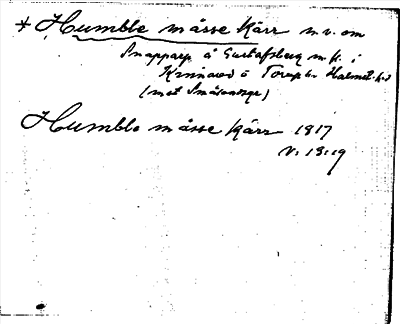 * Humble måsse Kärr n.v. om
Snapparp å Gustafsberg m fl. i
Kinnared o Torup sn Halmst. hd
(mot Småvange)
Humble måsse kärr 1817
v. 13:19